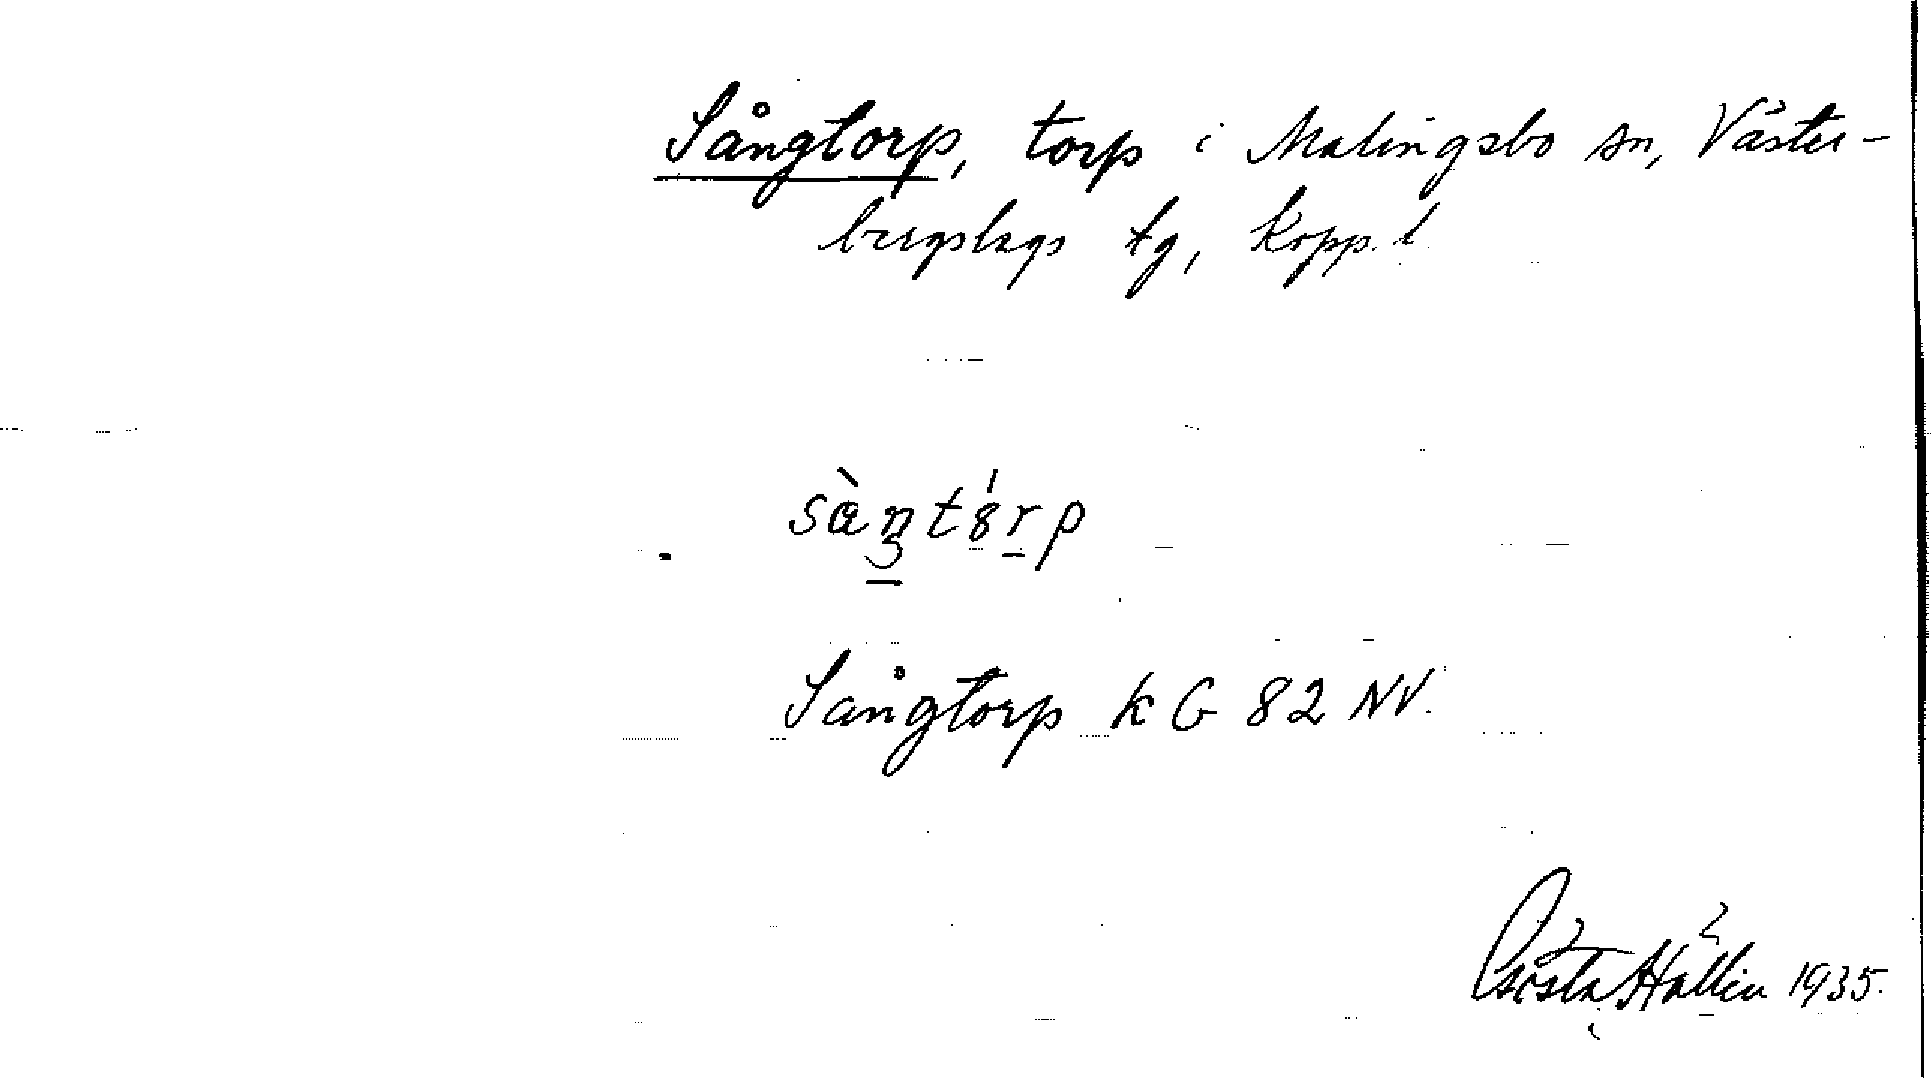 Sångtorp, torp i Malingsbo sn, Väster-
bergslags tg, Kopp. l.
Sångtorp k G 82 NV.
Gösta Hallin 1935.